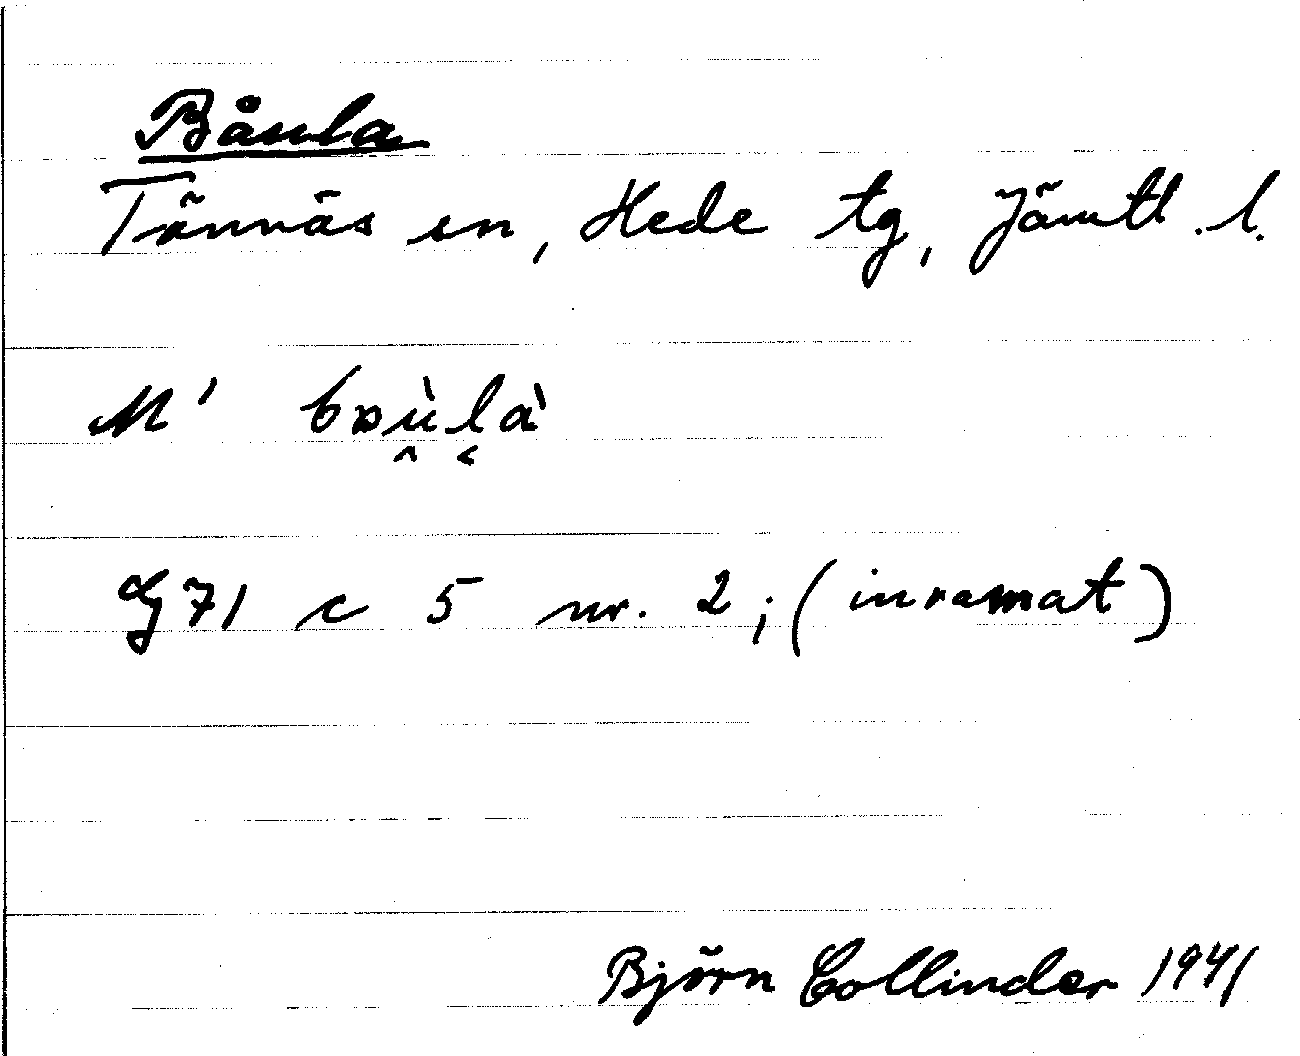 Båula
Tännäs sn, Hede tg, Jämtl. l.
M'
G 71 c 5 nr. 2; (inramat)
Björn Collinder 1941